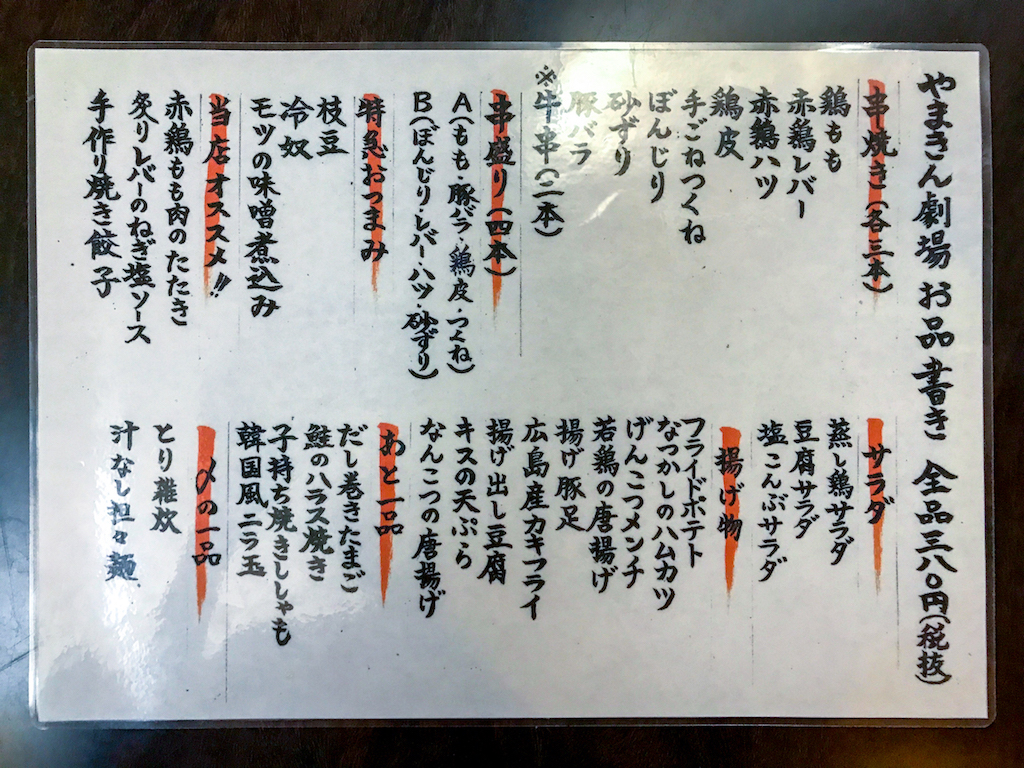 やまきん劇場 お品書き 全品三八〇円(税抜)
串焼き(各三本)
鶏もも
赤鶏レバー
赤鶏ハツ
鶏皮
手ごねつくね
ぼんじり
砂ずり
豚バラ
※牛串(二本)
串盛り(四本)
A(もも・豚バラ・鶏皮・つくね)
B(ぼんじり・レバー・ハツ・砂ずり)
特急おつまみ
枝豆
冷奴
モツの味噌煮込み
当店オススメ!!
赤鶏もも肉のたたき
炙りレバーのねぎ塩ソース
手作り焼き餃子
サラダ
蒸し鶏サラダ
豆腐サラダ
塩こんぶサラダ
揚げ物
フライドポテト
なつかしのハムカツ
げんこつメンチ
若鶏の唐揚げ
揚げ豚足
広島産カキフライ
揚げ出し豆腐
キスの天ぷら
なんこつの唐揚げ
あと一品
だし巻きたまご
鮭のハラス焼き
子持ち焼きししゃも
韓国風ニラ玉
〆の一品
とり雑炊
汁なし担々麺